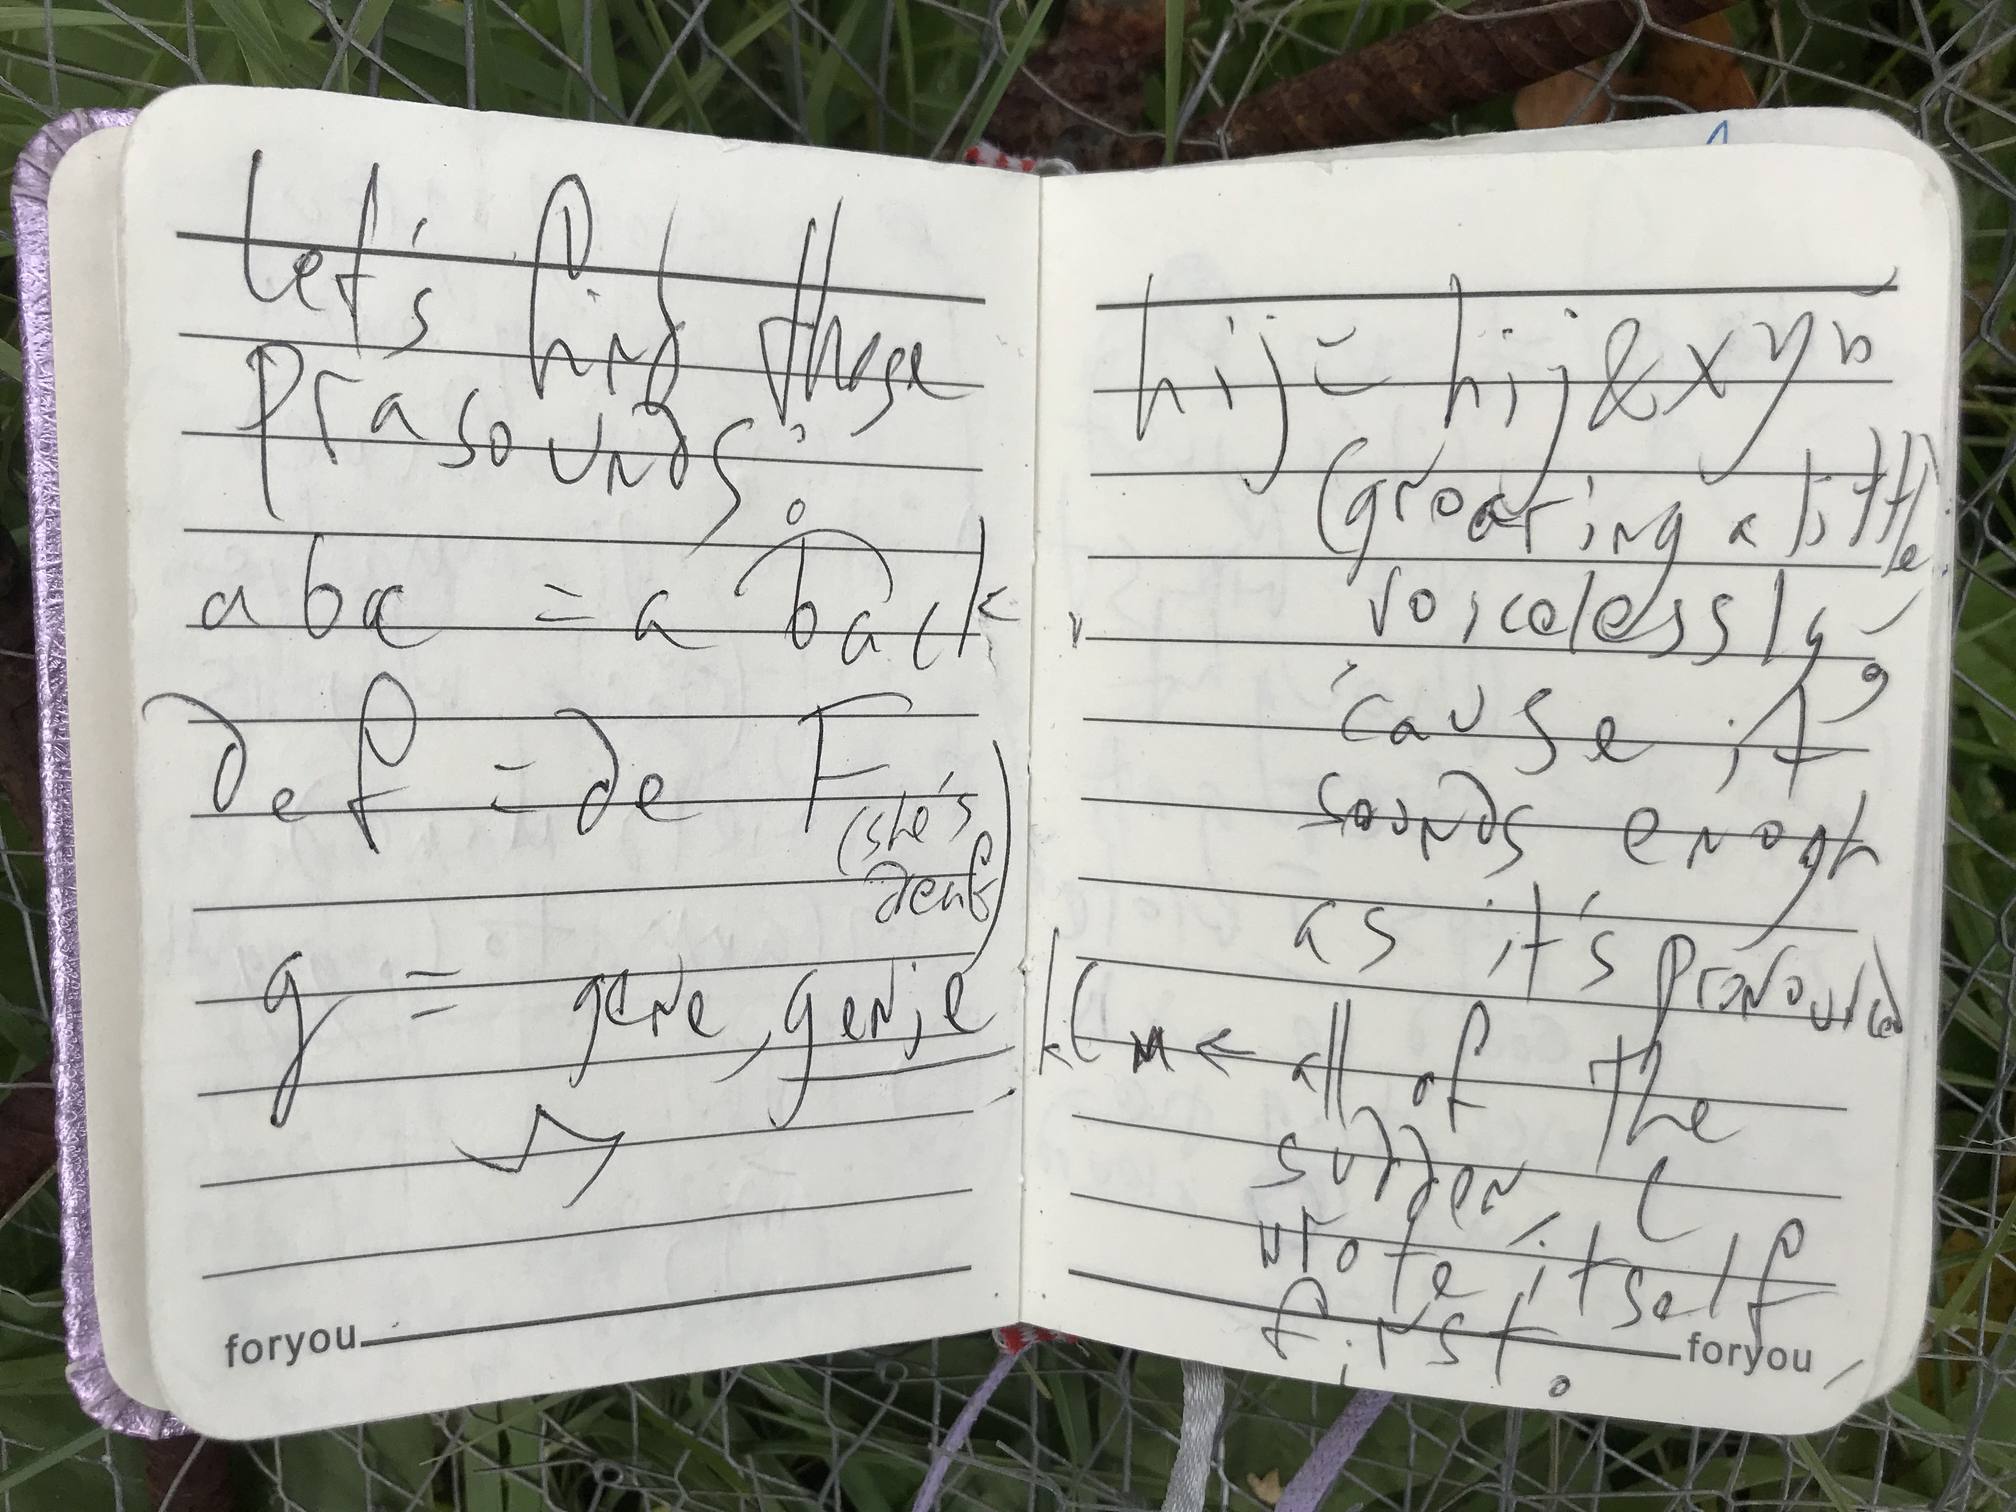 Let's find those
prasounds:
abc = a back
def = de F
(she's
deaf)
g = gene, genie
foryou
hij = hij & xyz
(groaning a little
voicelessly,
'cause it
sounds enogh
as it's pronounced
klm ← all of the
sudden, l
wrote itself
first.
foryou